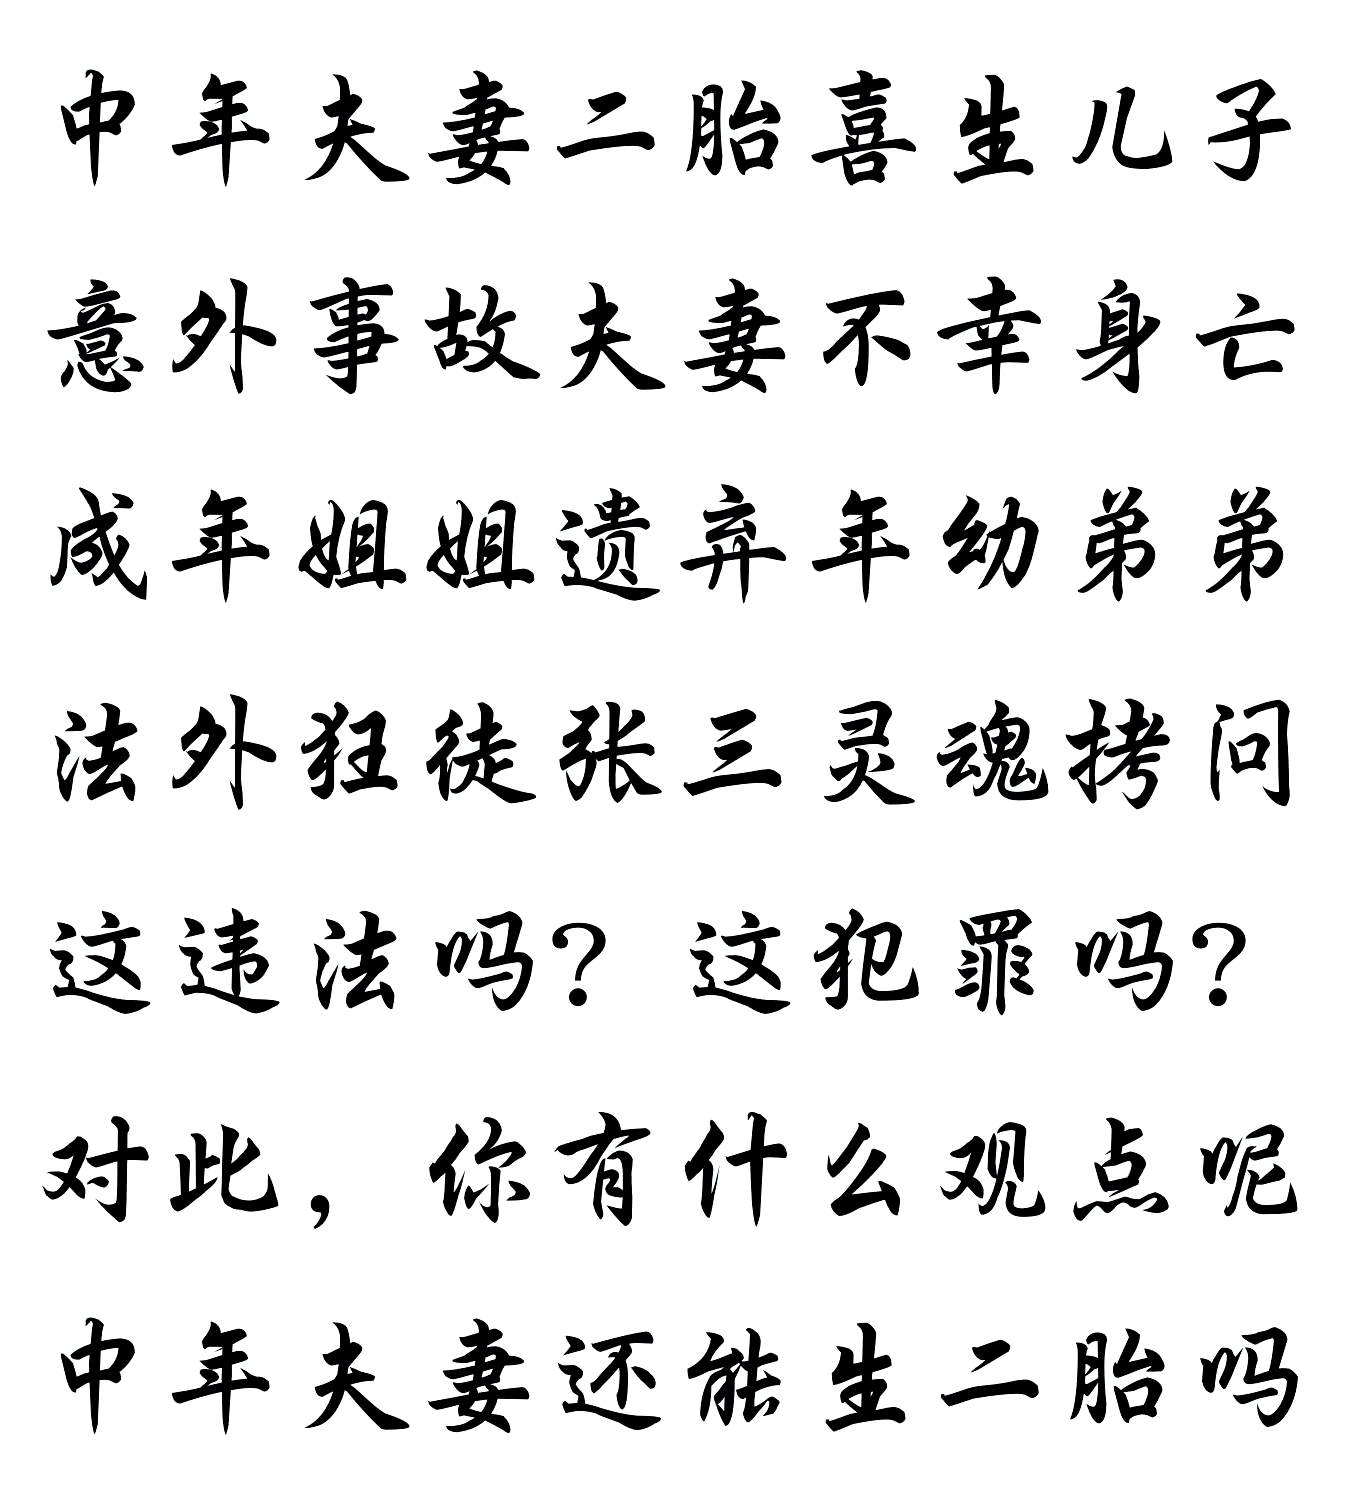 中年夫妻二胎喜生儿子
意外事故夫妻不幸身亡
成年姐姐遗弃年幼弟弟
法外狂徒张三灵魂拷问
这违法吗？这犯罪吗？
对此，你有什么观点呢
中年夫妻还能生二胎吗